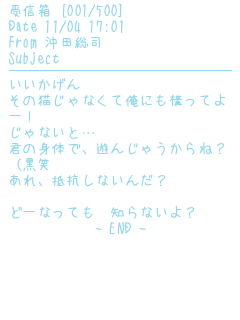 受信箱 [001/500]
Date 11/04 17:01
From 沖田総司
Subject
いいかげん
その猫じゃなくて俺にも構ってよ
ー！
じゃないと…
君の身体で、遊んじゃうからね？
（黒笑
あれ、抵抗しないんだ？
どーなっても　知らないよ？
~ END ~